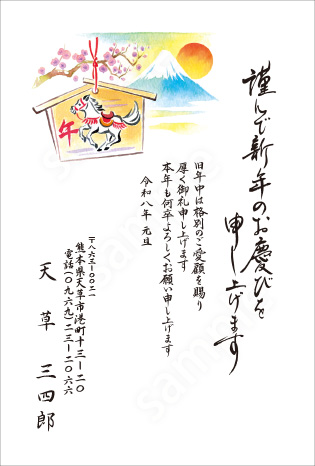 謹んで新年のお慶びを
申し上げます
旧年中は格別のご愛顧を賜り
厚く御礼申し上げます
本年も何卒よろしくお願い申し上げます
令和八年 元旦
〒八六三-〇〇二一
熊本県天草市港町十三-二〇
電話(〇九六九)二三-二〇六六
天草 三四郎
午
sample